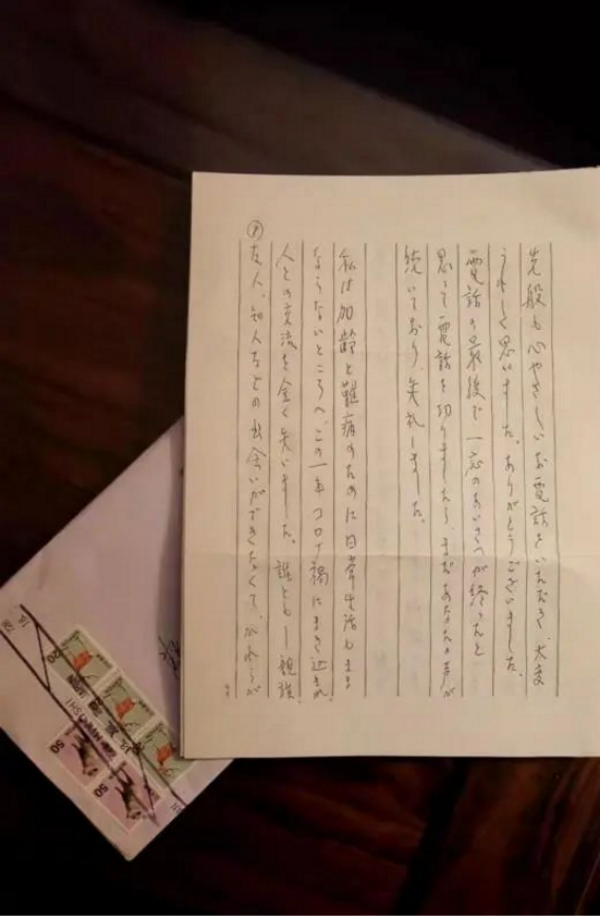 先般も心やさしいお電話をいただき、大変
うれしく思いました。ありがとうございました。
電話の最後で一応のあいさつが終ったと
思って電話を切りましたら、まだあなたの声が
続いており、失礼しました。
私は加齢と難病のために日常生活もまま
ならないところへ、この一年コロナ禍にまき込まれ、
人との交流を全く失いました。誰とも―親族、
友人、知人などの出会いができなくて、
20
20
50
50
JAPAN